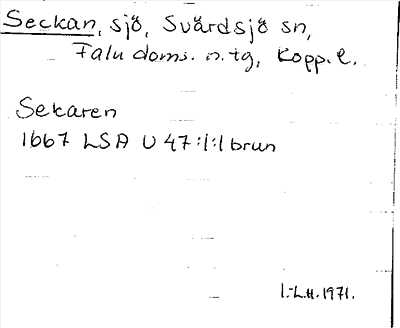 Seckan, sjö, Svärdsjö sn,
Falu doms. n. tg, Kopp. l.
Sekaren
1667 LSA U 47:1:1 brun
I.-L.H. 1971.